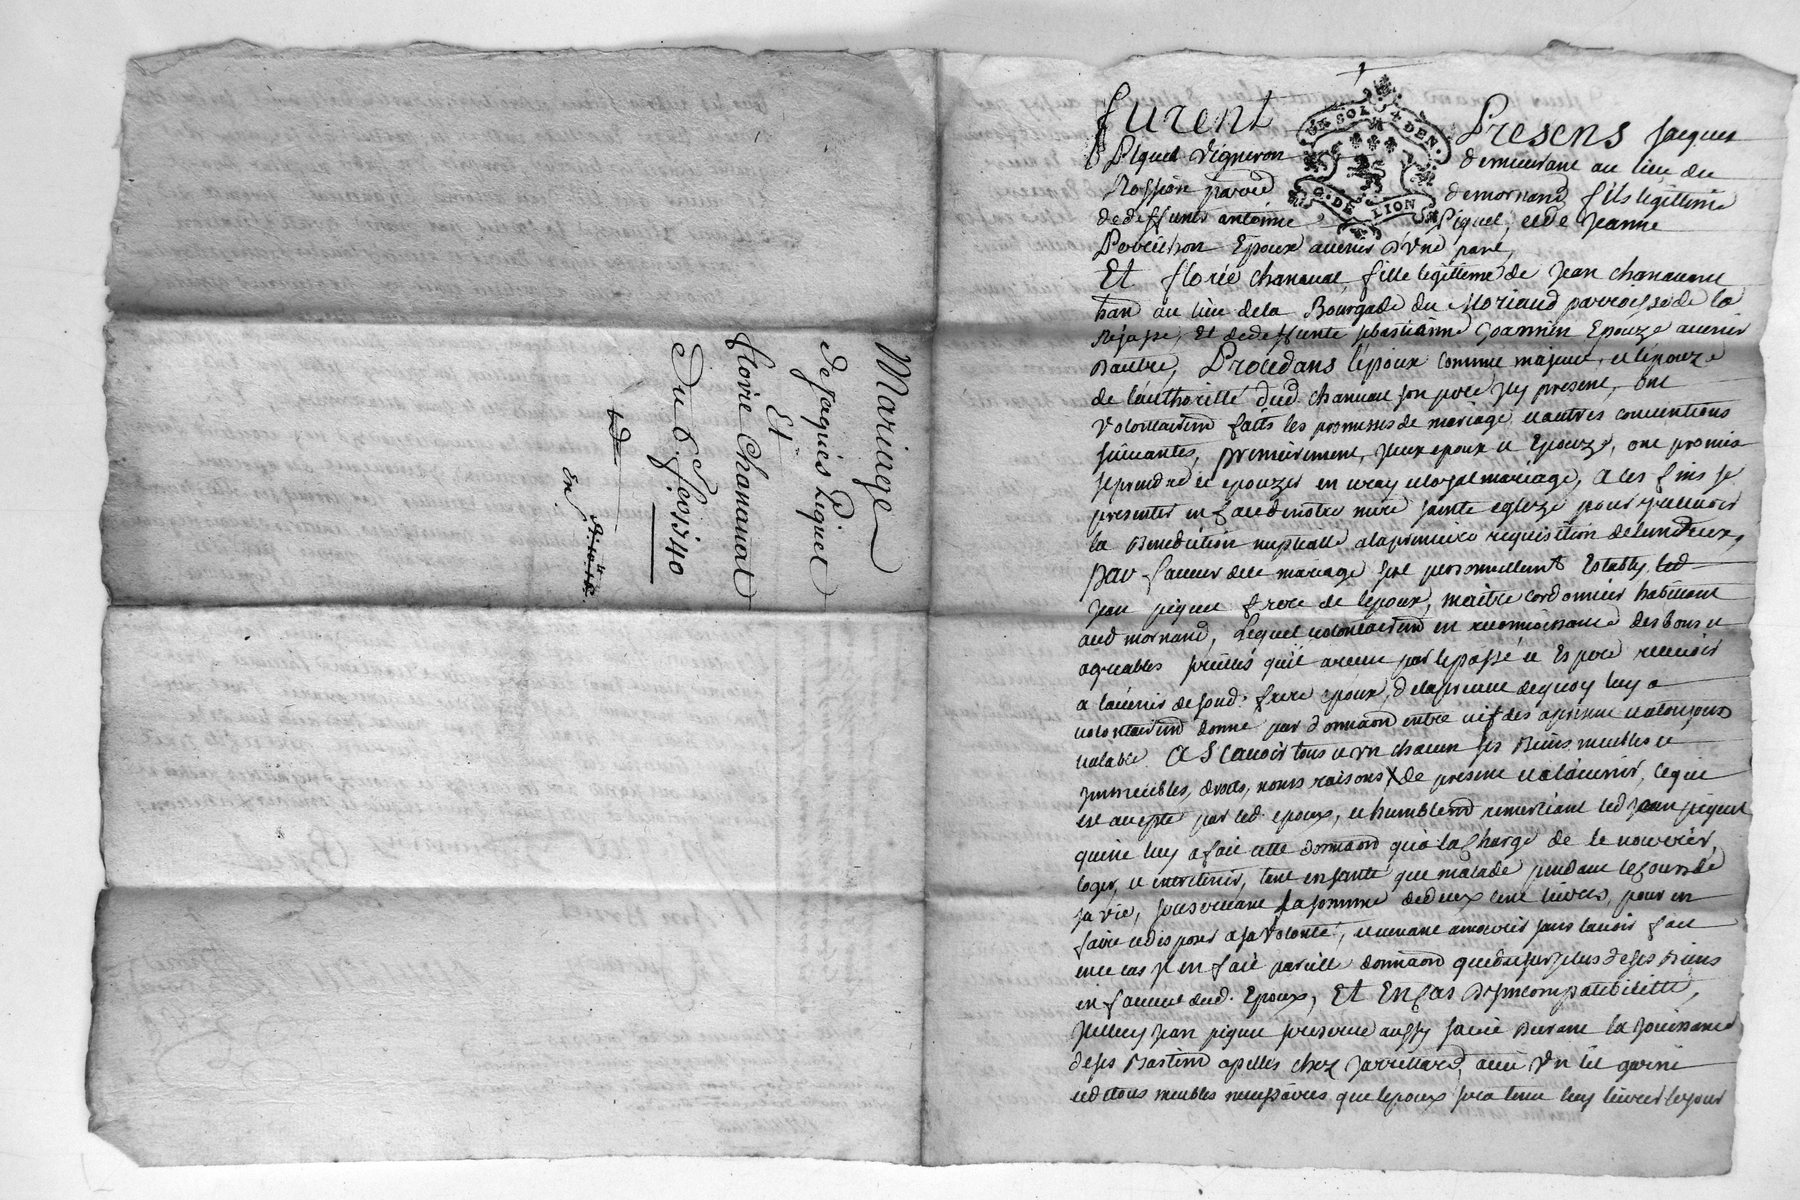 Mariage
de Jaques Piquet
Et
florie Chanavat
Du 6. fev. 1740
En
furent Presens Jacques
UN SOL 4 DEN.
G. DE LION
Piquet vigneron demeurant au lieu du
Rossion parr demornand fils legittime
dedeffunt antoine Piquet, et de Jeanne
Epoux avenir d'vne part,
Et florie chanavat, fille legittime de Jean chanavat
au lieu dela Bourgade du Moriaud parroisse de la
et dedeffunte sebastianne Epouze avenir
Dautre, Procedans l'epoux comme majeur, et l'epouze
de l'authorité dud. chanavat son pere icy present, ont
volontairemt faits les promesses de mariage et autres conventions
suivantes, premierement, yceux epoux et Epouze, ont promis
se prendre et epouzer en vray et loyal mariage, a ces fins se
presenter en face denotre mere sainte eglize pour y recevoir
la Benediction nuptialle ala premiere requisition de l'un deux,
par faveur dece mariage s'est personnellemt Estably led
jean piquet frere de lepoux, maitre cordonnier habittant
aud mornand, Lequel volontairemt en reconnoissance des bons et
agreables services quil a receu par lepassé et Espere recevoir
a lavenir desond. frere epoux, delapreuve dequoy luy a
volontairemt donné par donnaon entre vifs des apresent et atoujours
valable A Scavoir tous et vn chacun ses Biens meubles et
immeubles, droits, noms raisons X de present et alavenir, ce qui
est accepté par led. epoux, et humblemt remerciant led jean piquet
qui ne luy a fait cette donnaon qu'a la charge de le nourrir,
loger, et entretenir, tant en santé que malade pendant le cours de
sa vie, sous la somme dedeux cent livres, pour en
faire et disposer a sa volonté, et venant amourir sans lavoir fait
ence cas il en fait pareille donnaon quedu surplus de ses Biens
en faveur dud. Epoux, Et En cas D'incompatibilitté,
jcelluy Jean piquet se reserve aussy sa vie Durant la jouissance
deses Bastimt apellés chez avec vn lit garni
et dtous meubles necessaires que lepoux sera tenu luy livrer lejour